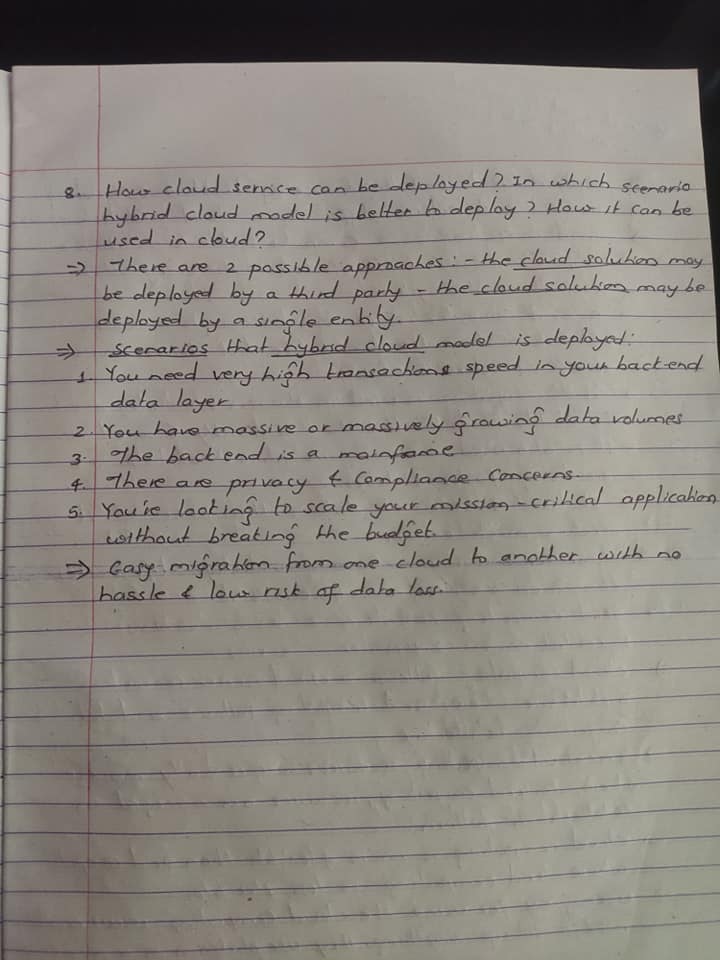 8. How cloud service can be deployed? In which scenario
hybrid cloud model is better to deploy? How it can be
used in cloud?
⇒ There are 2 possible approaches: - the cloud solution may
be deployed by a third party - the cloud solution may be
deployed by a single entity.
⇒ Scenarios that hybrid cloud model is deployed:
1. You need very high transactions speed in your back-end
data layer
2. You have massive or massively growing data volumes
3. The back end is a mainframe
4. There are privacy & Compliance Concerns.
5. You're looking to scale your mission-critical application
without breaking the budget.
⇒ Easy migration from one cloud to another with no
hassle & low risk of data loss.